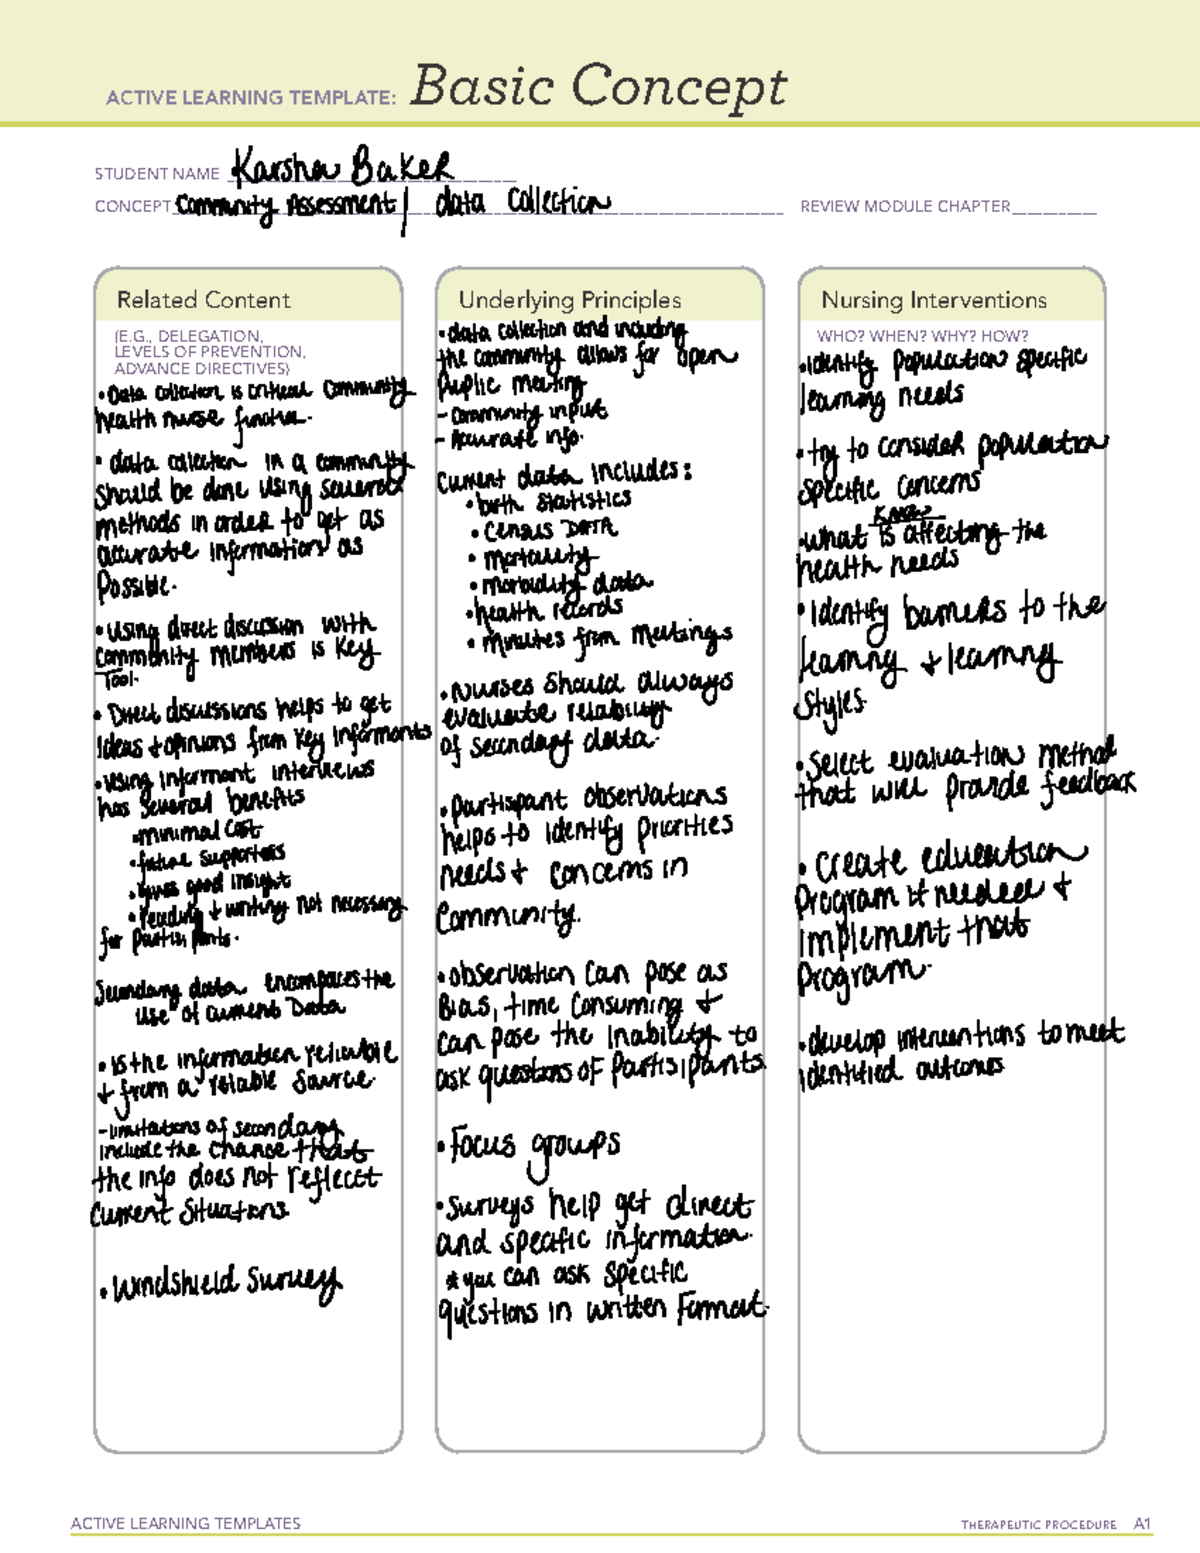 ACTIVE LEARNING TEMPLATE: Basic Concept
STUDENT NAME Karsha Baker
CONCEPT Community Assessment/ data Collection REVIEW MODULE CHAPTER
Related Content
(E.G., DELEGATION,
LEVELS OF PREVENTION,
ADVANCE DIRECTIVES)
• Data collection is critical Community
health nurse
• data collection in a community
should be done using several
methods in order to get as
accurate information as
Possible.
• Using direct discussion with
community members is key
Tool.
• Direct discussions helps to get
ideas + opinions from key informants
• using informant interviews
has several benefits
• minimal cost
• future supporters
• gives good insight
• reading + writing not necessary
for participants.
Secondary data encompaces the
use of current Data
• is the information reliable
+ from a relable source.
- limitations of secondary
include the chance that
the info does not reflect
current situations.
• Windshield Survey
Underlying Principles
• data collection and including
the community allows for open
Public meeting
- community input
- Accurate info.
Current data includes:
• birth statistics
• Census DATA
• mortality
• morbidity data
• health records
• minutes from meetings
• Nurses should always
evaluate reliability
of secondary data.
• partispant observations
helps to identify priorities
needs + concerns in
Community.
• observation can pose as
Bias, time consuming +
can pose the inability to
ask questions of Partisipants
• Focus groups
• Surveys help get direct
and specific information.
* you can ask specific
questions in written Format.
Nursing Interventions
WHO? WHEN? WHY? HOW?
• Identify population specific
learning needs
• try to consider population
specific concerns
Know
• what is affecting the
health needs
• Identify barriers to the
learning + learning
Styles.
• Select evaluation method
that will provide feedback
• Create education
Program if needed +
implement that
Program.
• develop interventions to meet
identified outcomes
ACTIVE LEARNING TEMPLATES THERAPEUTIC PROCEDURE A1